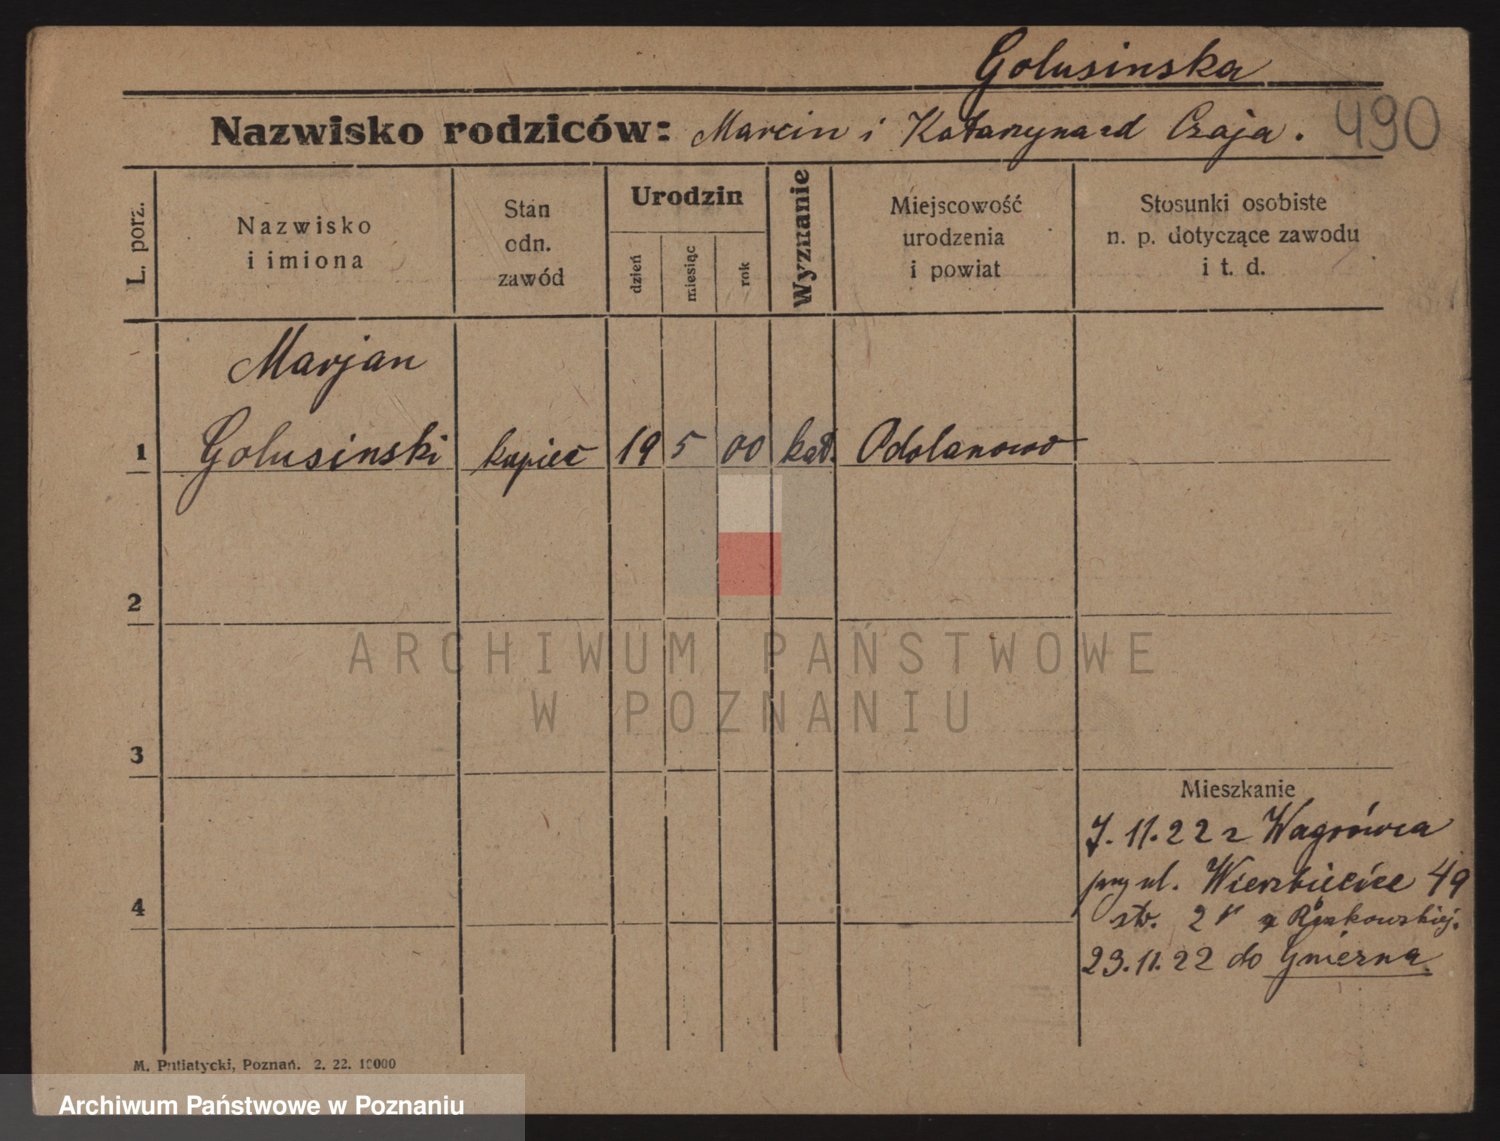 Golusinska
Nazwisko rodziców: Marcin i Katarzyna zd Czaja. 490
L. porz.
Nazwisko
i imiona
Stan
odn.
zawód
Urodzin
dzień
miesiąc
rok
Wyznanie
Miejscowość
urodzenia
i powiat
Stosunki osobiste
n. p. dotyczące zawodu
i t. d.
Marjan
1 Golusinski kupiec 19 5 00 kat. Odolanowo
2
ARCHIWUM PAŃSTWOWE
W POZNANIU
3
Mieszkanie
7.11.22 z Wagrówca
przy ul. Wierzbiecice 49
str. 2 u Rzakowskiej.
4
23.11.22 do Gniezna
M. Putiatycki, Poznań. 2. 22. 10000
Archiwum Państwowe w Poznaniu